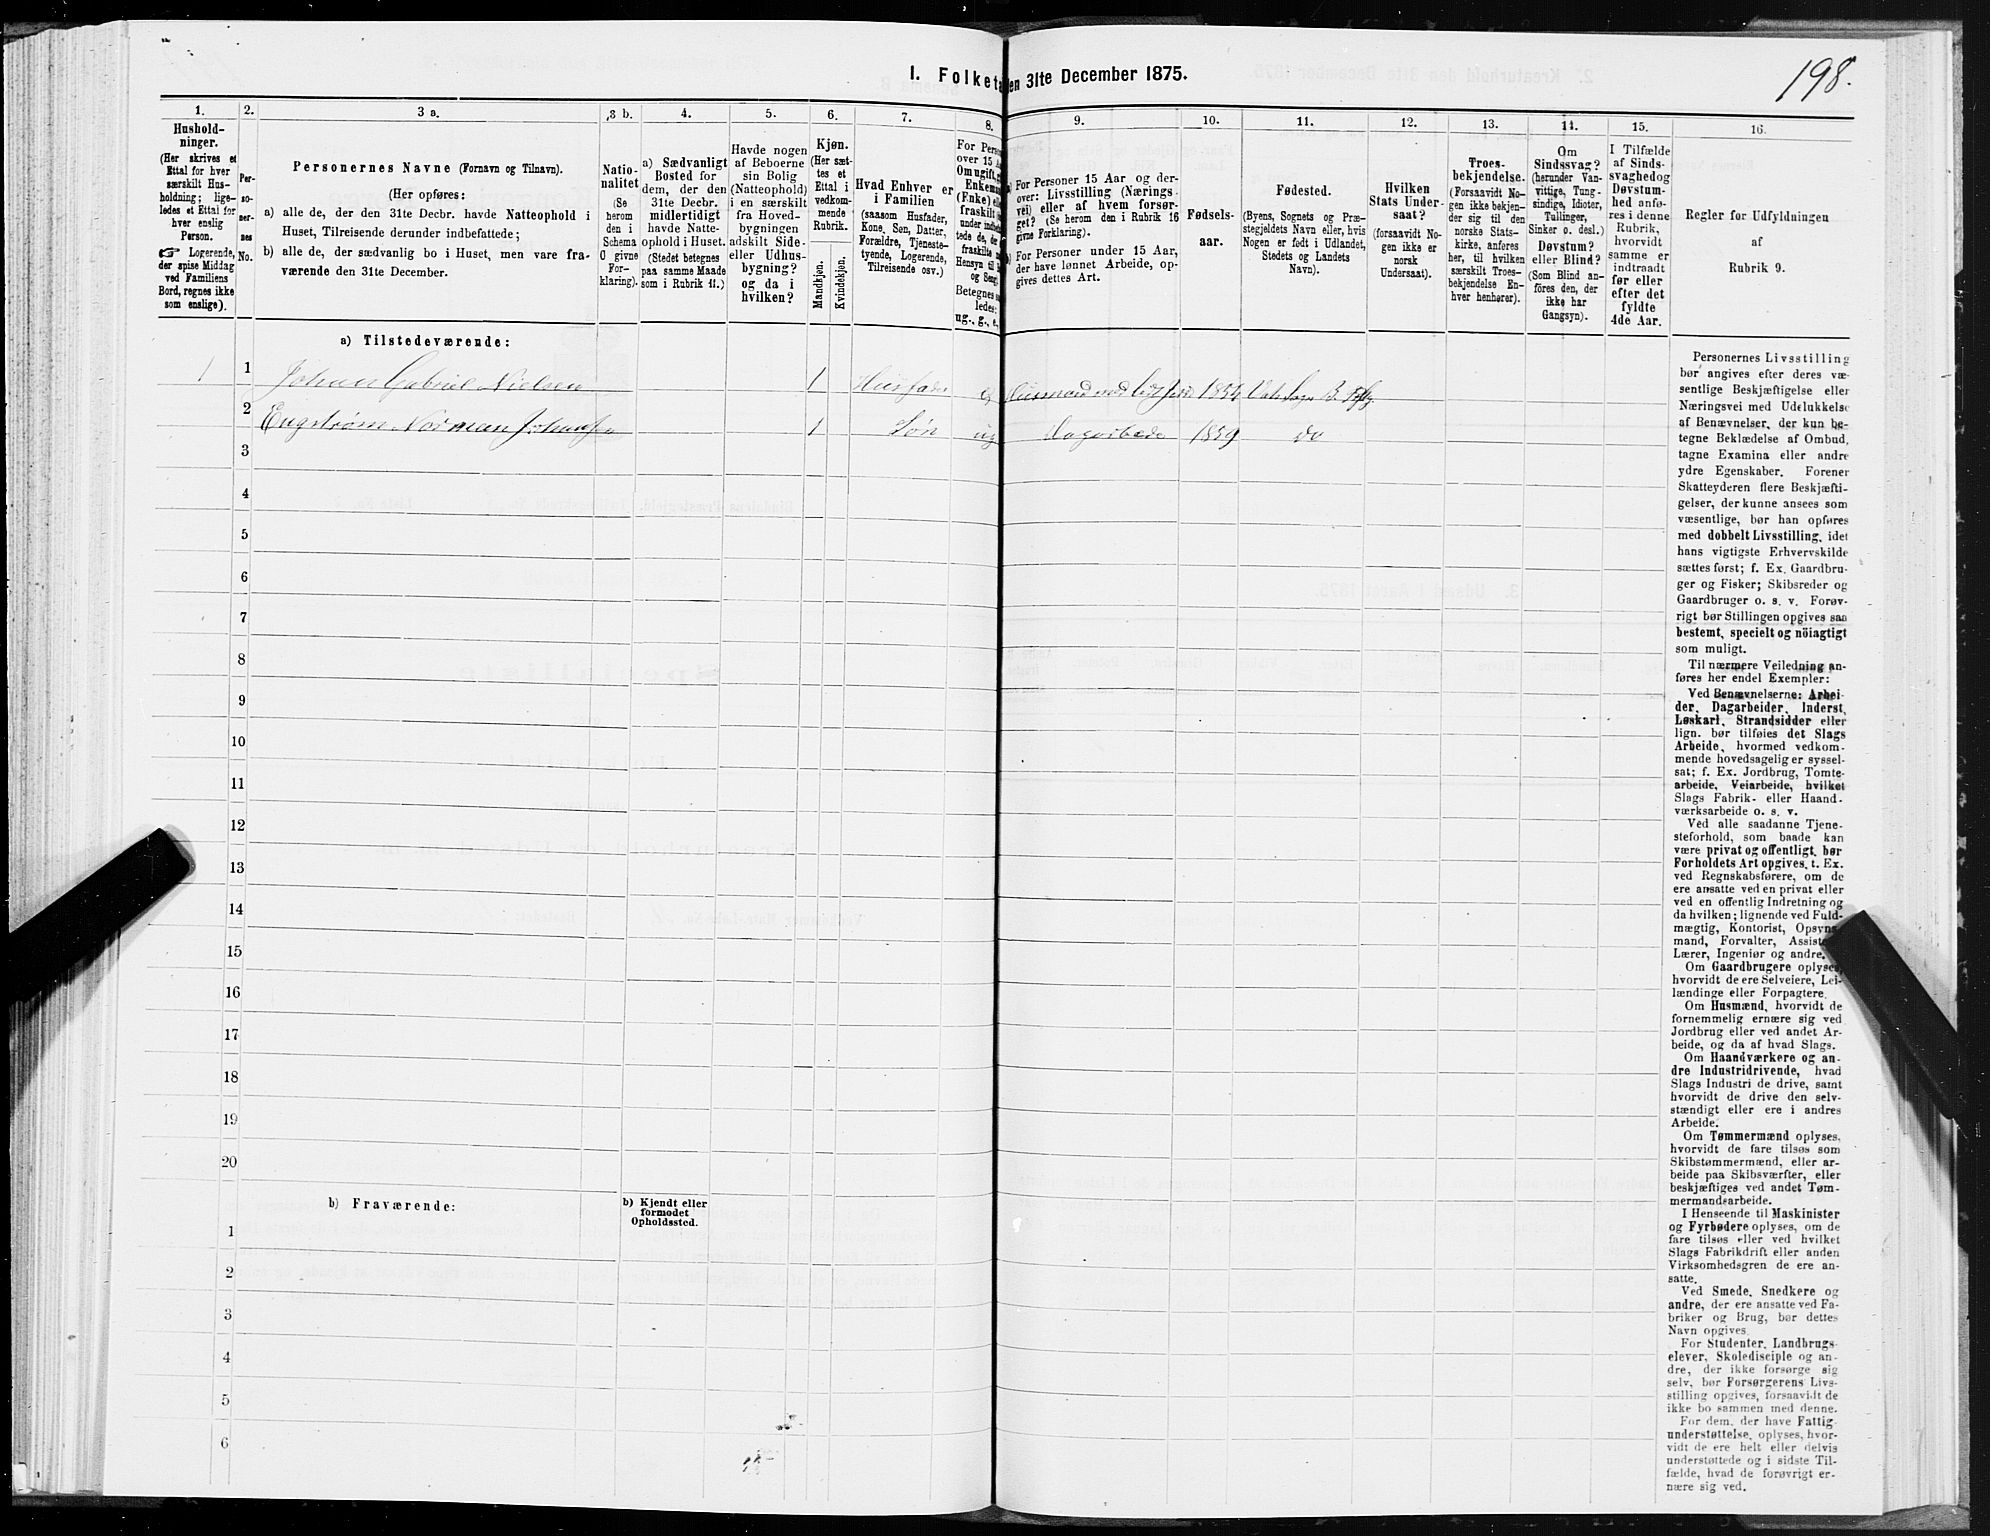 198.
I. Folketa
en 31te December 1875.
1.
2.
3 a.
3 b.
4.
5.
6.
7.
8.
9.
10.
11.
12.
13.
14.
15.
16.
Hushold-
ninger.
(Her skrives et
Ettal for hver
særskilt Hus-
holdning; lige-
ledes et Ettal for
hver enslig
Person.
☞ Logerende,
der spise Middag
ved Familiens
Bord, regnes ikke
som enslige).
Per-
so-
ner-
nes
No.
Personernes Navne (Fornavn og Tilnavn).
(Her opføres:
a) alle de, der den 31te Decbr. havde Natteophold i
Huset, Tilreisende derunder indbefattede;
b) alle de, der sædvanlig bo i Huset, men vare fra-
værende den 31te December.
Natio-
nalitet
(Se
herom
den i
Schema
O givne
For-
klaring).
a) Sædvanligt
Bosted for
dem, der den
31te Decbr.
midlertidigt
havde Natte-
ophold i Huset.
(Stedet betegnes
paa samme Maade
som i Rubrik 11.)
Havde nogen
af Beboerne
sin Bolig
(Natteophold)
i en særskilt
fra Hoved-
bygningen
adskilt Side-
eller Udhus-
bygning?
og da i
hvilken?
Kjøn.
(Her sæt-
tes et
Ettal i
vedkom-
mende
Rubrik.
Mandkjøn.
Kvindekjøn.
Hvad Enhver er
i Familien
(saasom Husfader,
Kone, Søn, Datter,
Forældre, Tjeneste-
tyende, Logerende,
Tilreisende osv.)
For Perso
over 15 A
Om ugift, g
Enkema
(Enke) ell
fraskilt
under indb
tede de, d
fraskilte
Hensyn til
og Seng
Betegnes s
ledes:
ug., g., e,
a) For Personer 15 Aar og der-
over: Livsstilling (Nærings-
vei) eller af hvem forsør-
get? (Se herom den i Rubrik 16
givne Forklaring).
b) For Personer under 15 Aar,
der have lønnet Arbeide, op-
gives dettes Art.
Fødsels-
aar.
Fødested.
(Byens, Sognets og Præ-
stegjeldets Navn eller, hvis
Nogen er født i Udlandet,
Stedets og Landets
Navn).
Hvilken
Stats Under-
saat?
(forsaavidt No-
gen ikke er
norsk
Undersaat).
Troes-
bekjendelse.
(Forsaavidt No-
gen ikke bekjen-
der sig til den
norske Stats-
kirke, anføres
her, til hvilken
særskilt Troes-
bekjendelse En-
hver henhører).
Om
Sindssvag?
(herunder Van-
vittige, Tung-
sindige, Idioter,
Tullinger,
Sinker o. desl.)
Døvstum?
eller Blind?
(Som Blind an-
føres den, der
ikke har
Gangsyn).
I Tilfælde
af Sinds-
svaghed og
Døvstum-
hed anfø-
res i denne
Rubrik,
hvorvidt
samme er
indtraadt
før eller
efter det
fyldte
4de Aar.
Regler for Udfyldningen
af
Rubrik 9.
a) Tilstedeværende:
1 1 Johan Gabriel Nielsen 1 Husfader Husmand
2 Engstrøm Norman Johansen 1 Søn ug Dagarbeder 1859 do
3
4
5
6
7
8
9
10
11
12
13
14
15
16
17
18
19
20
b) Fraværende:
b) Kjendt eller
formodet
Opholdssted.
1
2
3
4
5
6
Personernes Livsstilling
bør angives efter deres væ-
sentlige Beskjæftigelse eller
Næringsvei med Udelukkelse
af Benævnelser, der kun be-
tegne Beklædelse af Ombud,
tagne Examina eller andre
ydre Egenskaber. Forener
Skatteyderen flere Beskjæfti-
gelser, der kunne ansees som
væsentlige, bør han opføres
med dobbelt Livsstilling, idet
hans vigtigste Erhvervskilde
sættes først; f. Ex. Gaardbru-
ger og Fisker; Skibsreder og
Gaardbruger o. s. v. Forøv-
rigt bør Stillingen opgives saa
bestemt, specielt og nöiagtigt
som muligt.
Til nærmere Veiledning an-
føres her endel Exempler:
Ved Benævnelserne: Arbei-
der, Dagarbeider, Inderst,
Løskarl, Strandsidder eller
lign. bør tilføies det Slags
Arbeide, hvormed vedkom-
mende hovedsagelig er syssel-
sat; f. Ex. Jordbrug, Tomte-
arbeide, Veiarbeide, hvilket
Slags Fabrik- eller Haand-
værksarbeide o. s. v.
Ved alle saadanne Tjene-
steforhold, som baade kan
være privat og offentligt, bør
Forholdets Art opgives, t. Ex.
ved Regnskabsførere, om de
ere ansatte ved en privat eller
ved en offentlig Indretning og
da hvilken; lignende ved Fuld-
mægtig, Kontorist, Opsyns-
mand, Forvalter, Assistent,
Lærer, Ingeniør og andre.
Om Gaardbrugere oplyses,
hvorvidt de ere Selveiere, Lei-
lændinge eller Forpagtere.
Om Husmænd, hvorvidt de
fornemmelig ernære sig ved
Jordbrug eller ved andet Ar-
beide, og da af hvad Slags.
Om Haandværkere og an-
dre Industridrivende, hvad
Slags Industri de drive, samt
hvorvidt de drive den selv-
stændigt eller ere i andres
Arbeide.
Om Tømmermænd oplyses,
hvorvidt de fare tilsøs som
Skibstømmermænd, eller ar-
beide paa Skibsværfter, eller
beskjæftiges ved andet Tøm-
mermandsarbeide.
I Henseende til Maskinister
og Fyrbødere oplyses, om de
fare tilsøs eller ved hvilket
Slags Fabrikdrift eller anden
Virksomhedsgren de ere an-
satte.
Ved Smede, Snedkere og
andre, der ere ansatte ved Fa-
briker og Brug, bør dettes
Navn opgives.
For Studenter, Landbrugs-
elever, Skoledisciple og an-
dre, der ikke forsørge sig
selv, bør Forsørgerens Livs-
stilling opgives, forsaavidt de
ikke bo sammen med denne.
For dem, der have Fattig-
understøttelse, oplyses, hvor-
vidt de ere helt eller delvis
understøttede og i sidste Til-
fælde, hvad de forøvrigt er-
nære sig ved.